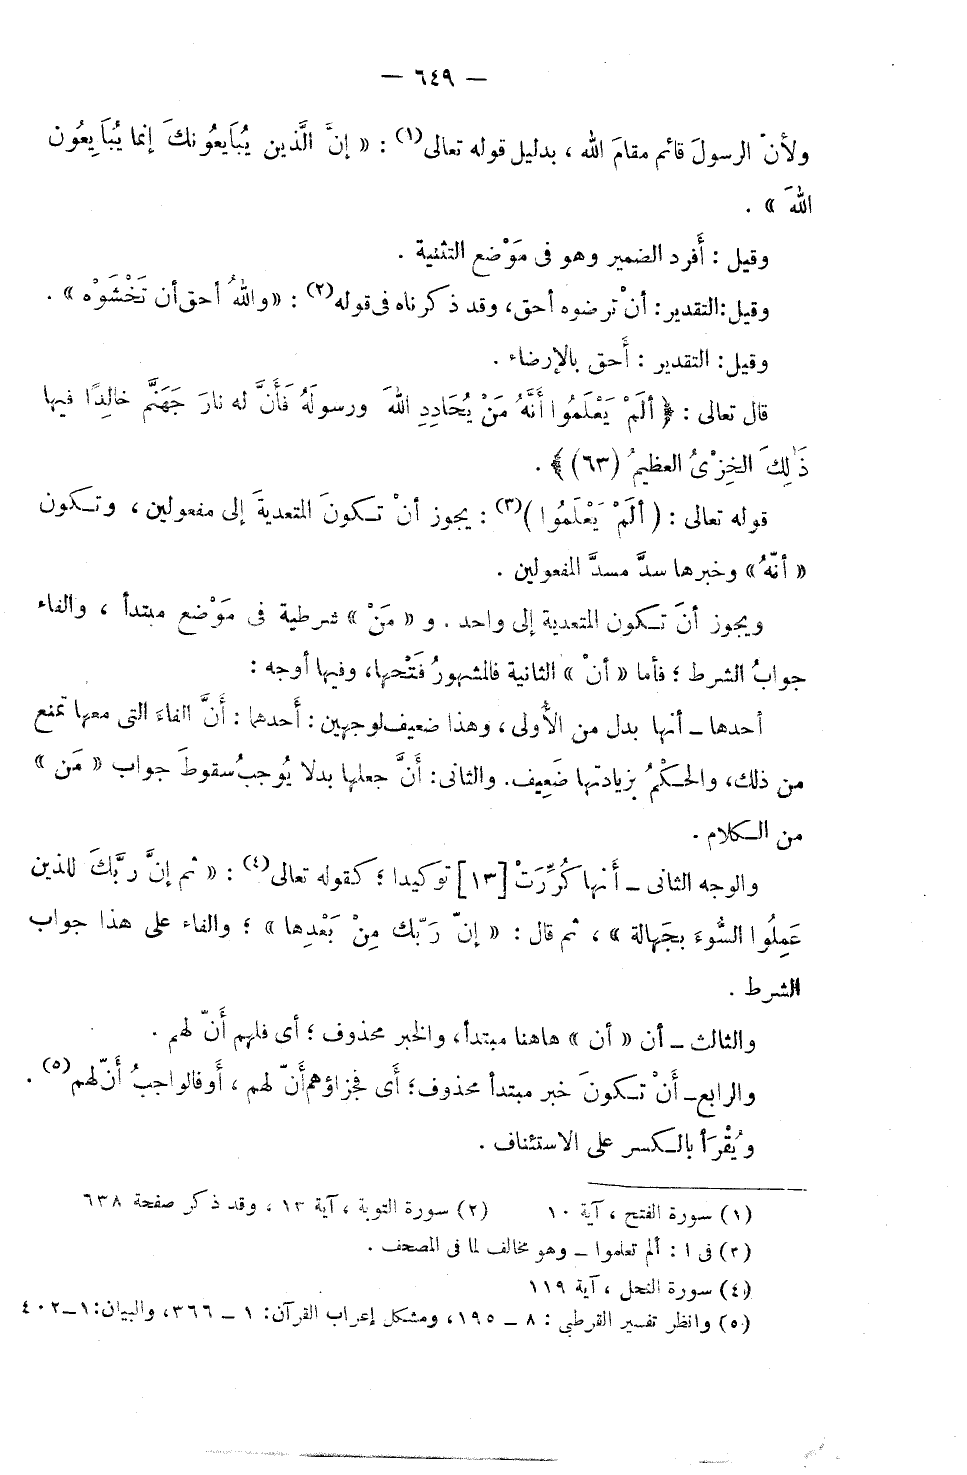 — ٦٤٩ —
ولأنْ الرسولَ قائم مقامَ الله ، بدليل قوله تعالى(١) : « إنَّ الَّذين يُبَايعُونكَ إنما يُبَايِعُون
اللهَ » .
وقيل : أَفرد الضمير وهو فى مَوْضع التثنية .
وقيل:التقدير: أنْ ترضوه أحق، وقد ذكرناه فى قوله(٢) : «واللهُ أحق أن تَخْشَوْه» .
وقيل: التقدير : أَحق بالإرضاء .
قال تعالى : ﴿ ألَمْ يَعْلَمُوا أنَّهُ مَنْ يُحَادِدِ اللهَ ورسولَهُ فَأَنَّ له نارَ جَهَنَّم خالِدًا فيها
ذَٰلِكَ الخِزْىُ العظيمُ (٦٣)﴾ .
قوله تعالى : ( ألَمْ يَعْلَمُوا )(٣) : يجوز أنْ تـكونَ المتعديةَ إلى مفعولين ، وتـكون
« أنّهُ » وخبرها سدَّ مسدَّ المفعولين .
ويجوز أنَ تـكون المتعدية إلى واحد . و « مَنْ » شرطية فى مَوْضع مبتدأ ، والفاء
جوابُ الشرط ؛ فأما « أنْ » الثانية فالمشهورُ فَتْحها، وفيها أوجه :
أحدها ـ أنها بدل من الأُولى، وهذا ضعيف لوجهين : أَحدهما : أَنَّ الفاءَ التى معها تمنع
من ذلك، والحـكْمُ بزيادتها ضَعِيف. والثانى: أَنَّ جعلها بدلا يُوجبُ سقوطَ جواب « مَن »
من الـكلام .
والوجه الثانى ـ أَنها كُرِّرَتْ [١٣] توكيدا ؛ كقوله تعالى(٤) : « ثم إنَّ ربَّكَ للذين
عَمِلُوا السُّوءَ بجَهالة » ، ثم قال : « إنّ رَبّك مِنْ بَعْدِها » ؛ والفاء على هذا جواب
الشرط .
والثالث ـ أن « أن » هاهنا مبتدأ، والخبر محذوف ؛ أى فلهم أَنّ لهم .
والرابع ـ أَنْ تـكونَ خبر مبتدأ محذوف؛ أَى فجزاؤهم أَنّ لهم ، أَو فالواجبُ أَنّ لهم(٥) .
ويُقْرَأ بالـكسر على الاستئناف .
(١) سورة الفتح ، آية ١٠ (٢) سورة التوبة ، آية ١٣ ، وقد ذكر صفحة ٦٣٨
(٣) فى ا : ألم تعلموا ـ وهو مخالف لما فى المصحف .
(٤) سورة النحل ، آية ١١٩
(٥) وانظر تفسير القرطبى : ٨ ـ ١٩٥، ومشكل إعراب القرآن: ١ ـ ٣٦٦، والبيان: ١ـ٤٠٢